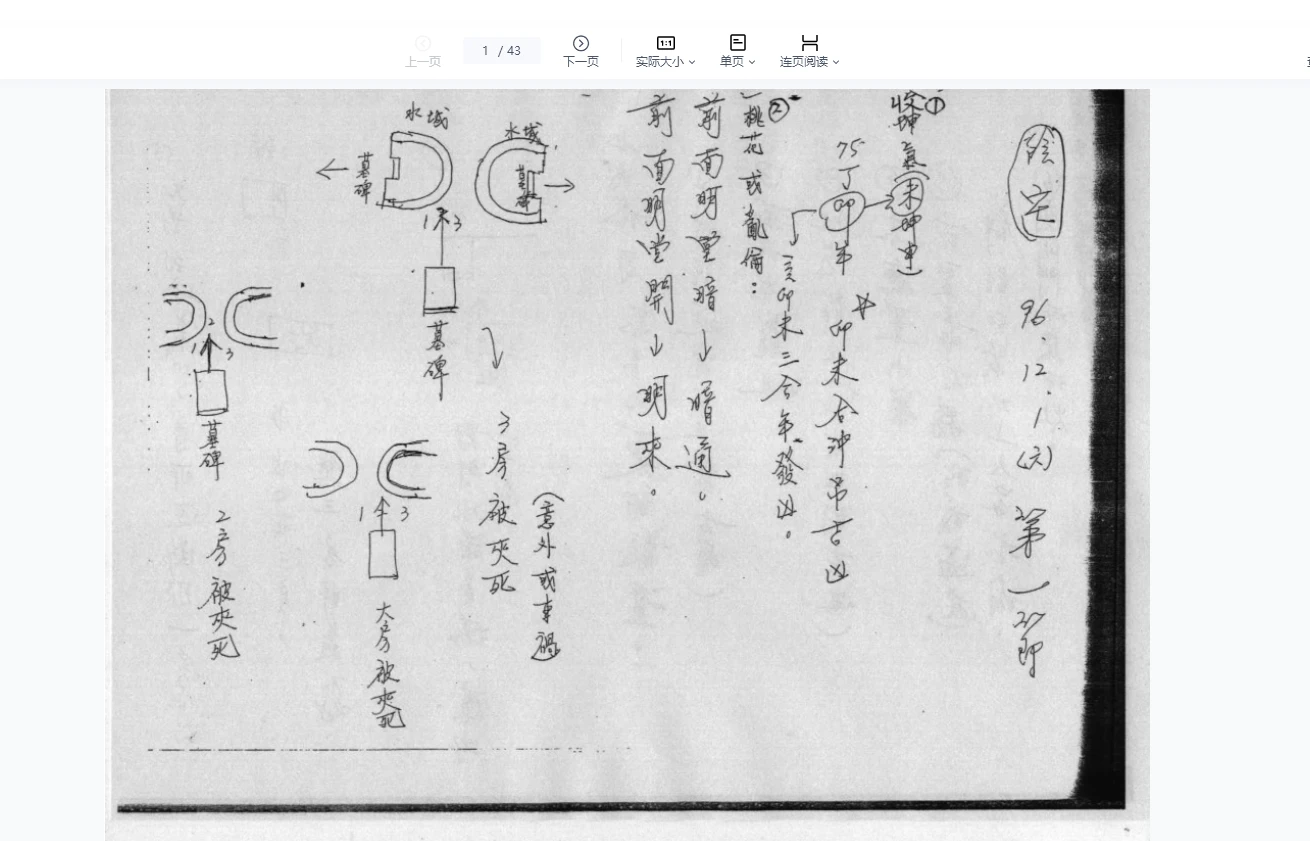 上一页
1 / 43
下一页
实际大小
单页
连页阅读
陰宅
96.12.1(六) 第一節
① 收坤氣(未坤申)
75丁卯年 卯未合沖吊吉凶
亥卯未三合年發凶。
② 桃花或亂倫:
前面明堂暗↓暗通。
前面明堂開↓明來。
水城
墓碑
水城
墓碑
1 3
墓碑
3房被夾死
(意外或車禍)
1 3
大房被夾死
2
1 3
墓碑
2房被夾死